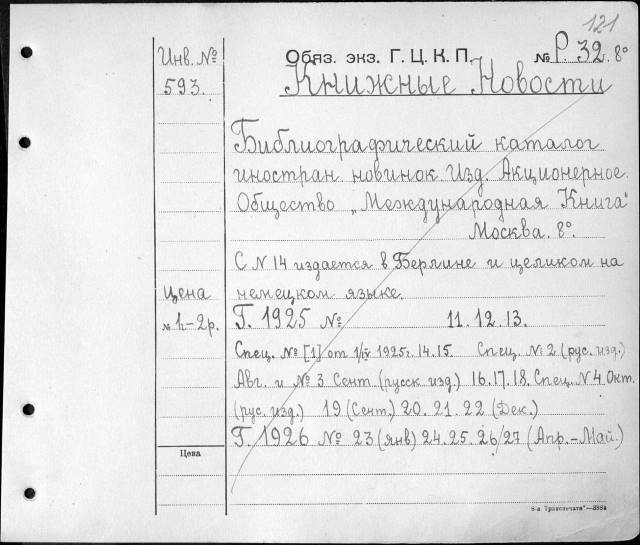 121
Инв. №
593.
Обяз. экз. Г. Ц. К. П. № Р. 32. 8°
Книжные Новости
Библиографический каталог
иностран. новинок Изд. Акционерное
Общество „Международная Книга"
Москва. 8°.
С N 14 издается в Берлине и целиком на
немецком языке.
Цена
Г. 1925 № 11. 12. 13.
Спец. № [1] от 1/V 1925. 14. 15. Спец. № 2 (рус. изд.)
Авг. и № 3 Сент. (русск. изд.) 16. 17. 18. Спец. N 4 Окт.
(рус. изд.) 19 (Сент.) 20. 21. 22 (Дек.)
Г. 1926 № 23 (янв) 24. 25. 26/27 (Апр.-Май.)
Цена